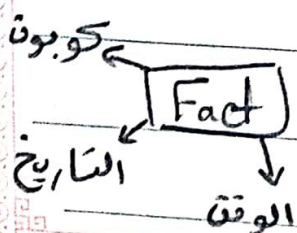 كوبون
Fact
التاريخ
الوقت